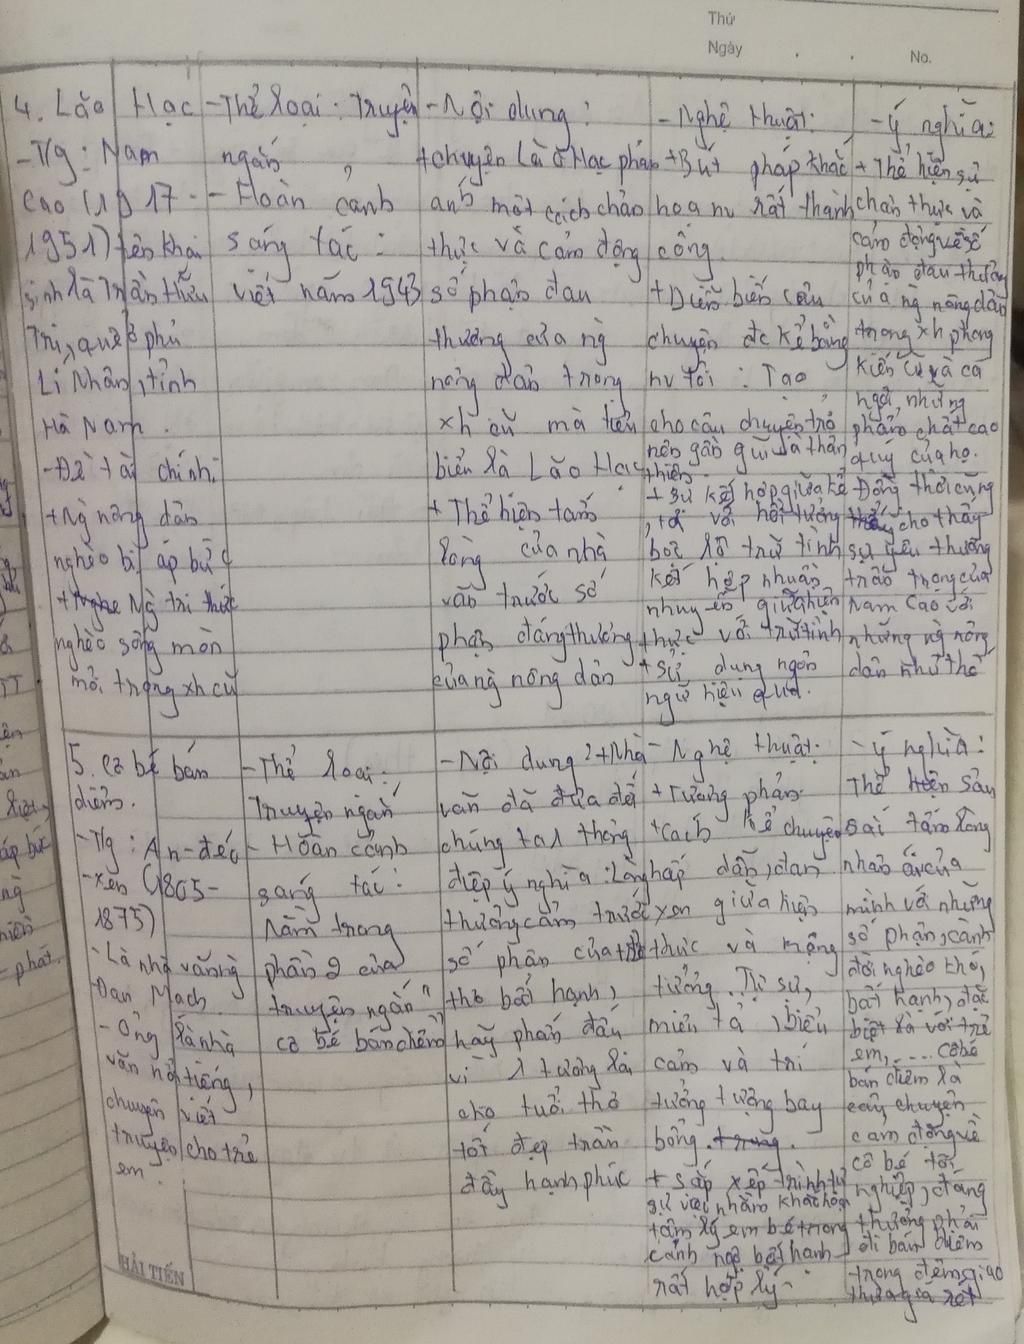 Thứ
Ngày
No.
4. Lão Hạc
-T/g: Nam
Cao (1917-
1951) tên khai
sinh là Trần Hữu
Tri, quê ở phủ
Lí Nhân, tỉnh
Hà Nam.
-Đề tài chính:
+Ng nông dân
nghèo bị áp bức
+ Ng tri thức
nghèo sống mòn
mỏi trong xh cũ
-Thể loại: Truyện
ngắn
- Hoàn cảnh
sáng tác:
viết năm 1943
-Nội dung:
+chuyện Lão Hạc phản
ánh một cách chân
thực và cảm động
số phận đau
thương của ng
nông dân trong
xh cũ mà tiêu
biểu là Lão Hạc
+ Thể hiện tấm
lòng của nhà
văn trước số
phận đáng thương
của ng nông dân
-Nghệ thuật:
+Bút pháp khắc
hoạ nv rất thành
công.
+Diễn biến câu
chuyện đc kể bằng
nv tôi: Tạo
cho câu chuyện trở
nên gần gũi và chân
thiện.
+ Sự kết hợp giữa kể
, tả với hồi tưởng
bộc lộ trữ tình
kết hợp nhuần
nhuyễn giữa hiện
thực với trữ tình
+sử dụng ngôn
ngữ hiệu quả.
-Ý nghĩa:
+ Thể hiện sự
chân thực và
cảm động về số
phận đau thương
của ng nông dân
trong xh phong
kiến cũ và ca
ngợi những
phẩm chất cao
quý của họ.
Đồng thời cũng
cho thấy
sự yêu thương
trân trọng của
Nam Cao với
những ng nông
dân như thế
5. Cô bé bán
diêm.
-T/g: An-đéc
-xen (1805-
1875)
-Là nhà văn ng
Đan Mạch
- Ông là nhà
văn nổi tiếng,
chuyên viết
truyện cho trẻ
em.
-Thể loại:
Truyện ngắn
- Hoàn cảnh
sáng tác:
Nằm trong
phần 2 của
truyện ngắn "
cô bé bán diêm"
-Nội dung: +Nhà
văn đã đưa đến
chúng ta 1 thông
điệp ý nghĩa: Lòng
thương cảm trước
số phận của trẻ
thơ bất hạnh,
hãy phấn đấu
vì 1 tương lai
cho tuổi thơ
tốt đẹp tràn
đầy hạnh phúc
- Nghệ thuật:
+ Tương phản
+cách kể chuyện
hấp dẫn, đan
xen giữa hiện
thực và mộng
tưởng. Tự sự,
miêu tả, biểu
cảm và trí
tưởng tượng bay
bổng.
+ sắp xếp trình tự
sự việc nhằm khắc hoạ
tâm lý em bé trong
cảnh ngộ bất hạnh
rất hợp lý
-Ý nghĩa:
Thể hiện sâu
sắc tấm lòng
nhân ái của
mình với những
số phận, cảnh
đời nghèo khó,
bất hạnh, đặc
biệt là với trẻ
em,.... Cô bé
bán diêm là
câu chuyện
cảm động về
cô bé tội
nghiệp, đáng
thương phải
đi bán diêm
trong đêm giao
thừa giá rét
HẢI TIẾN